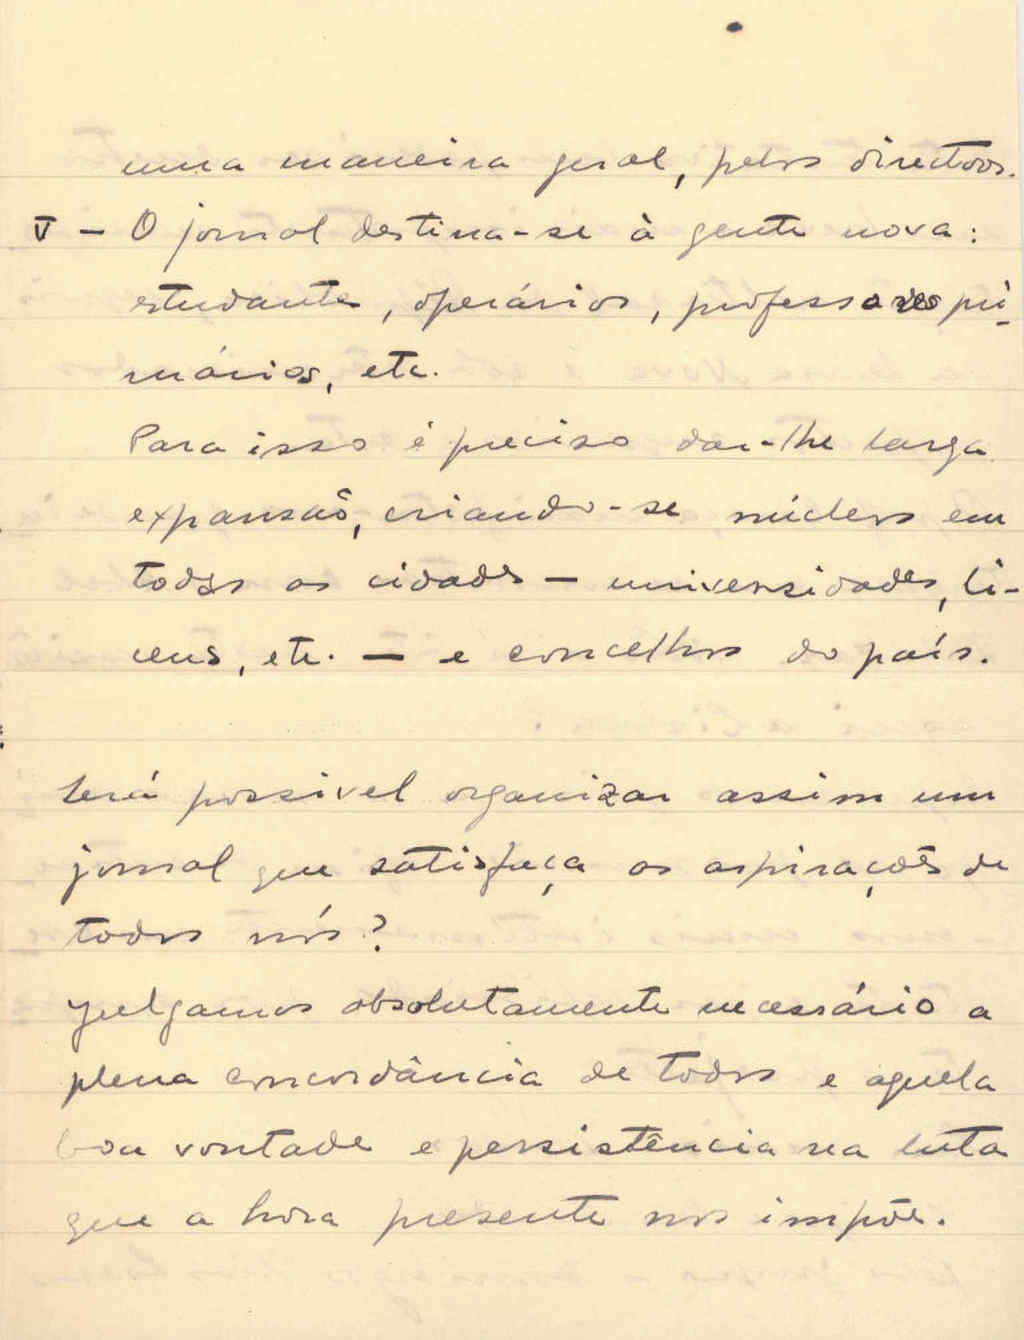 uma maneira geral, pelos directores.
V – O jornal destina-se à gente nova:
estudantes, operários, professores pri-
mários, etc.
Para isso é preciso dar-lhe larga
expansão, criando-se núcleos em
todas as cidades – universidades, li-
ceus, etc. – e concelhos do país.
Será possivel organizar assim um
jornal que satisfaça as aspirações de
todos nós?
Julgamos absolutamente necessário a
plena concordância de todos e aquela
boa vontade e persistência na luta
que a hora presente nos impõe.